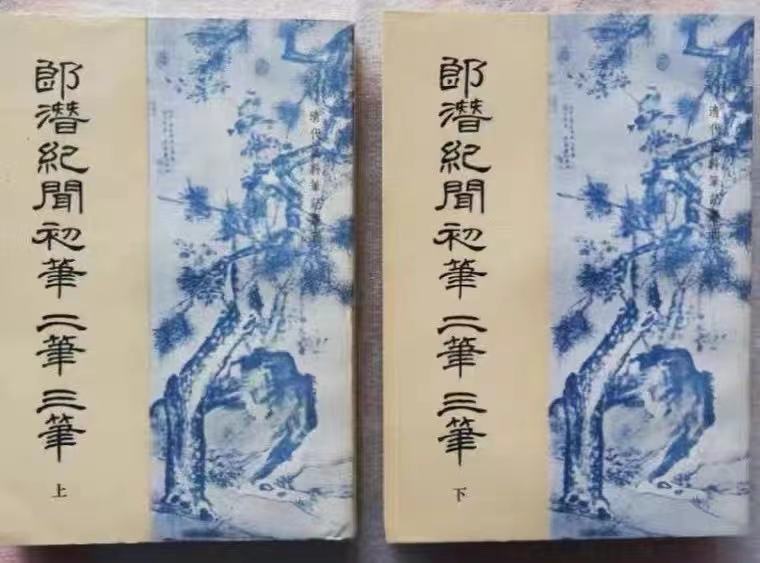 郎潛紀聞初筆 二筆 三筆
上
清代史料筆記叢刊
郎潛紀聞初筆 二筆 三筆
下
清代史料筆記叢刊